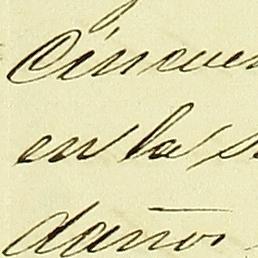 Cincuen
en la s
daños